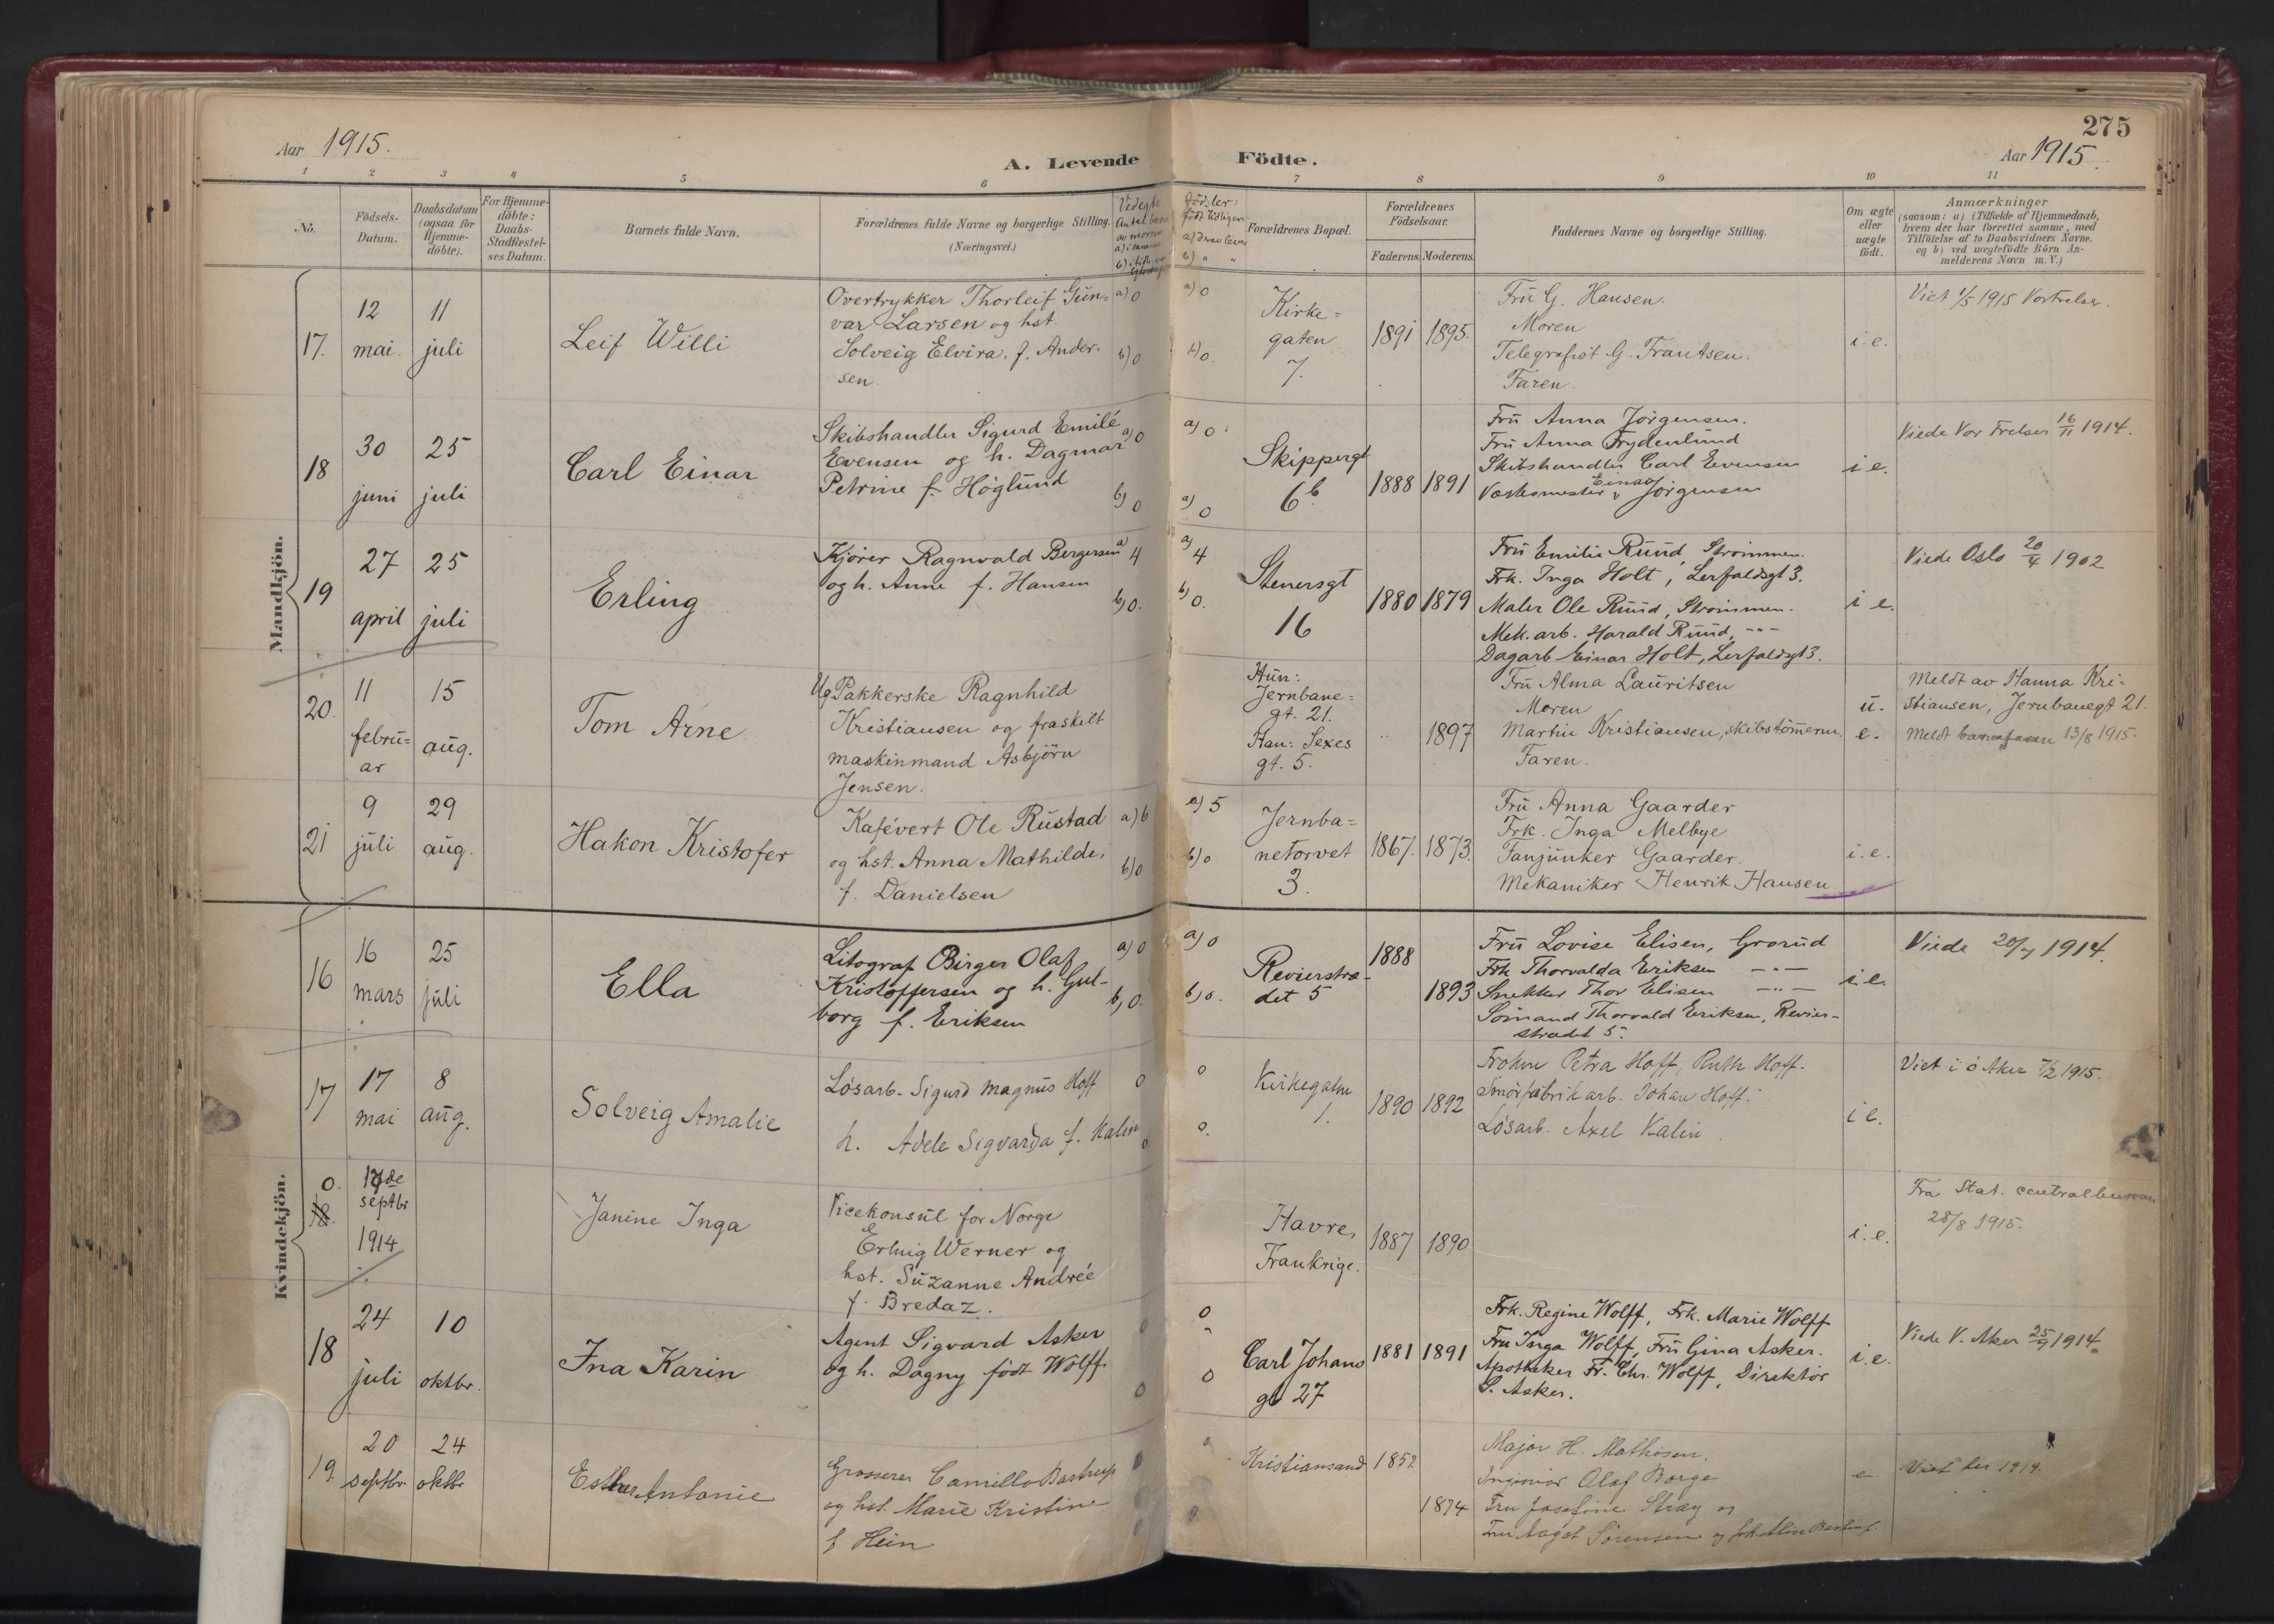 275
Aar 1915.
A. Levende Födte.
Aar 1915.
1 2 3 4 5 6 7 8 9 10 11
No.
Födsels-
Datum.
Daabsdatum
(ogsaa for
Hjemme-
döbte).
For Hjemme-
döbte:
Daabs-
Stadfæstel-
ses Datum.
Barnets fulde Navn.
Forældrenes fulde Navne og borgerlige Stilling.
(Næringsvei.)
Forældrenes Bopæl.
Forældrenes
Födselsaar.
Faderens. Moderens.
Faddernes Navne og borgerlige Stilling.
Om ægte
eller
uægte
födt.
Anmærkninger
(saasom: a) i Tilfælde af Hjemmedaab,
hvem der har forrettet samme, med
Tilföielse af to Daabsvidners Navne.
og b) ved uægtefödte Börn An-
melderens Navn m. V.)
Mandkjön.
17.
12
mai.
11
juli
Leif Willi
Overtrykker Thorleif Gun-
var Larsen og hst.
Solveig Elvira, f. Ander-
sen.
a) 0
b) 0
a) 0
b) 0.
Kirke-
gaten
7.
1891 1895.
Fru G. Hansen.
Moren
Telegrafist G. Frantsen.
Faren.
i.e.
Viet 1/5 1915 Vorfrelser.
18
30
juni
25
juli
Carl Einar
Skibshandler Sigurd Emil
Evensen og h. Dagmar
Petrine f. Höglund
a) 0
b) 0
a) 0
a) 0
Skippergt
6b.
1888 1891
Fru Anna Jørgensen.
Fru Anna Frydenlund
Skibshandler Carl Evensen
Verksmester Einar Jørgensen
i e.
Viede Vor Frelser 16/11 1914.
19
27
april
25
juli
Erling
Kjører Ragnvald Bergersen
og h. Anne f. Hansen
a) 4
b) 0.
a) 4
b) 0.
Stenersgt
16
1880 1879
Fru Emilie Ruud, Strømmen.
Frk. Inga Holt, Lerfaldsgt 3.
Maler Ole Ruud, Strømmen.
Mek. arb. Harald Ruud, -"-
Dagarb Einar Holt, Lerfaldsgt 3.
i e.
Viede Oslo 20/4 1902
20.
11
febru-
ar
15
aug.
Tom Arne
Ug Pakkerske Ragnhild
Kristiansen og fraskilt
maskinmand Asbjörn
Jensen.
Hun:
Jernbane-
gt. 21.
Han: Sexes
gt. 5.
1897
Fru Alma Lauritsen
Moren
Martin Kristiansen, skibstømerm.
Faren.
u.
e.
Meldt av Hanna Kri-
stiansen, Jernbanegt 21.
Meldt barnefaren 13/8 1915.
21
9
juli
29
aug.
Hakon Kristofer
Kafévert Ole Rustad
og hst. Anna Mathilde,
f. Danielsen
a) 6
b) 0
a) 5
b) 0
Jernba-
netorvet
3.
1867. 1873.
Fru Anna Gaarder
Frk. Inga Melbye
Fanjunker Gaarder.
Mekaniker Henrik Hansen.
i.e.
Kvindekjön.
16
16
mars
25
juli
Ella
Litograf Birger Olaf
Kristoffersen og h. Gul-
borg f. Eriksen
a) 0
b) 0.
a) 0
b) 0.
Revierstræ-
det 5
1888
1893
Fru Lovise Elisen, Grorud
Frk Thorvalda Eriksen -"-
Snekker Thor Elisen -"-
Sømand Thorvald Eriksen, Revier-
strædet 5.
i.e.
Viede 20/7 1914.
17
17
mai
8
aug.
Solveig Amalie
Løsarb. Sigurd Magnus Hoff
h. Adele Sigvarda f. Kalin
0
0
0
0.
Kirkegaten
1.
1890 1892
Frøken Petra Hoff, Ruth Hoff.
Smørfabrik arb. Johan Hoff.
Løsarb. Axel Kalin
i e.
Viet i Ö Aker 7/2 1915.
0.
18.
17de
septbr
1914
Janine Inga
Vicekonsul for Norge
Erling Werner og
hst. Suzanne Andrée
f. Bredaz.
Havre,
Frankrige.
1887 1890
i.e.
Fra Stat. centralbureau
28/8 1915.
18
24
juli
10
oktbr.
Ina Karin
Agent Sigvard Asker
og h. Dagny født Wolff
0
0
0
0
Carl Johans
gt 27
1881 1891
Frk. Regine Wolff, Frk. Marie Wolff
Fru Inga Wolff, Fru Gina Asker.
Apotheker Fr. Chr. Wolff, Direktør
S. Asker.
i.e.
Viede V. Aker 25/9 1914.
19.
20
septbr
24
oktbr
Esther Antonie
Grosserer Camillo Bastrup
og hst. Marie Kristine
f Hein
Kristiansand
1852
1874
Major H. Mathisen.
Ingeniør Olaf Borge
Fru Josefine Stray og
Fru Aagot Sørensen og
e
Viet her 1914.